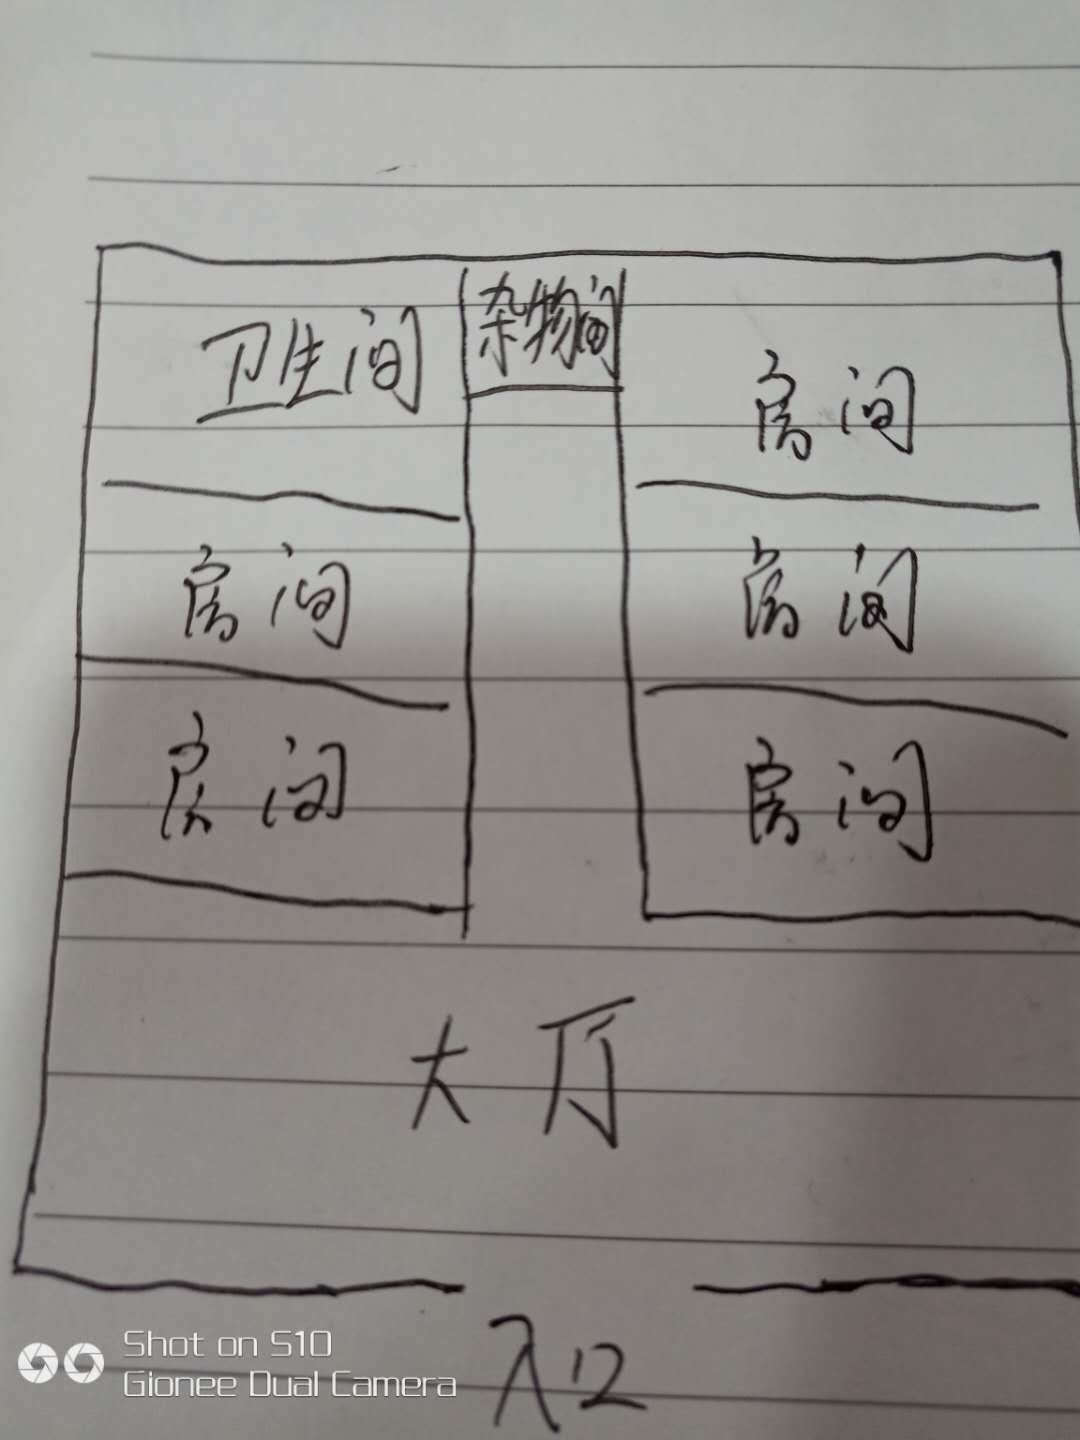 卫生间 杂物间 房间
房间 房间
房间 房间
大厅
入口
Shot on S10
Gionee Dual Camera